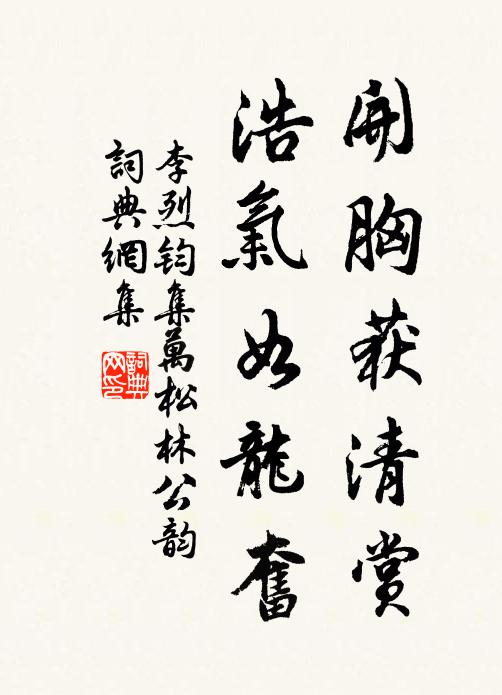 開胸获清賞
浩氣如龍奮
李烈钧集萬松林公韵
詞典網集
詞典
网印